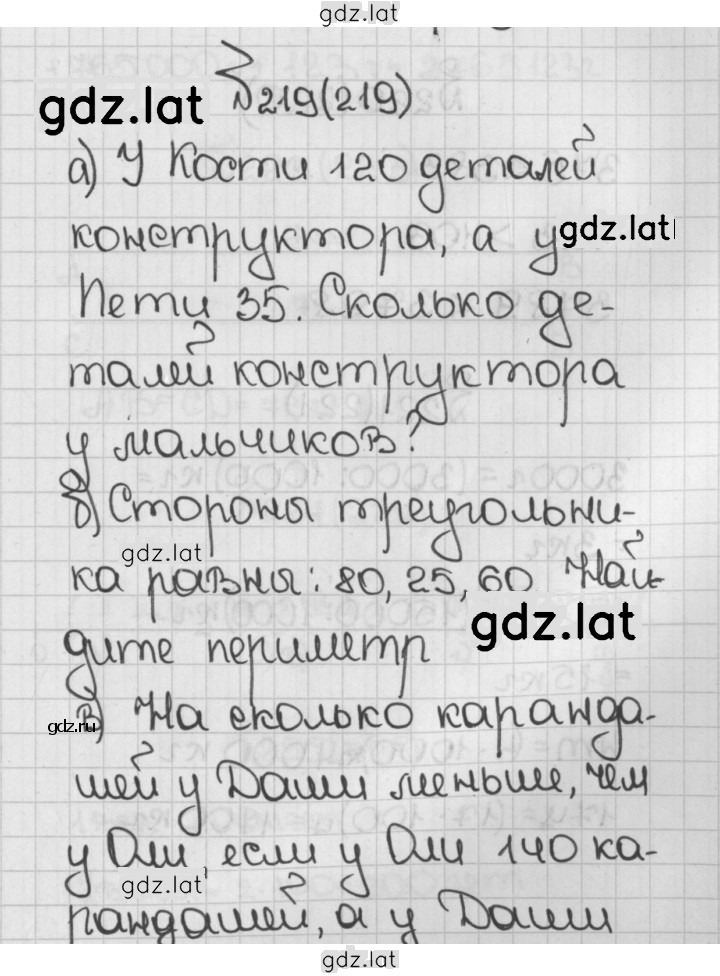 gdz.lat
№219(219)
gdz.lat
а) У Кости 120 деталей
конструктора, а у
gdz.lat
Пети 35. Сколько де-
талей конструктора
у мальчиков?
б) Стороны треугольни-
gdz.lat
ка равны: 80, 25, 60. Най-
gdz.lat
дите периметр
gdz.ru
в) На сколько каранда-
шей у Даши меньше, чем
у Оли, если у Оли 140 ка-
gdz.lat
рандашей, а у Даши
gdz.lat